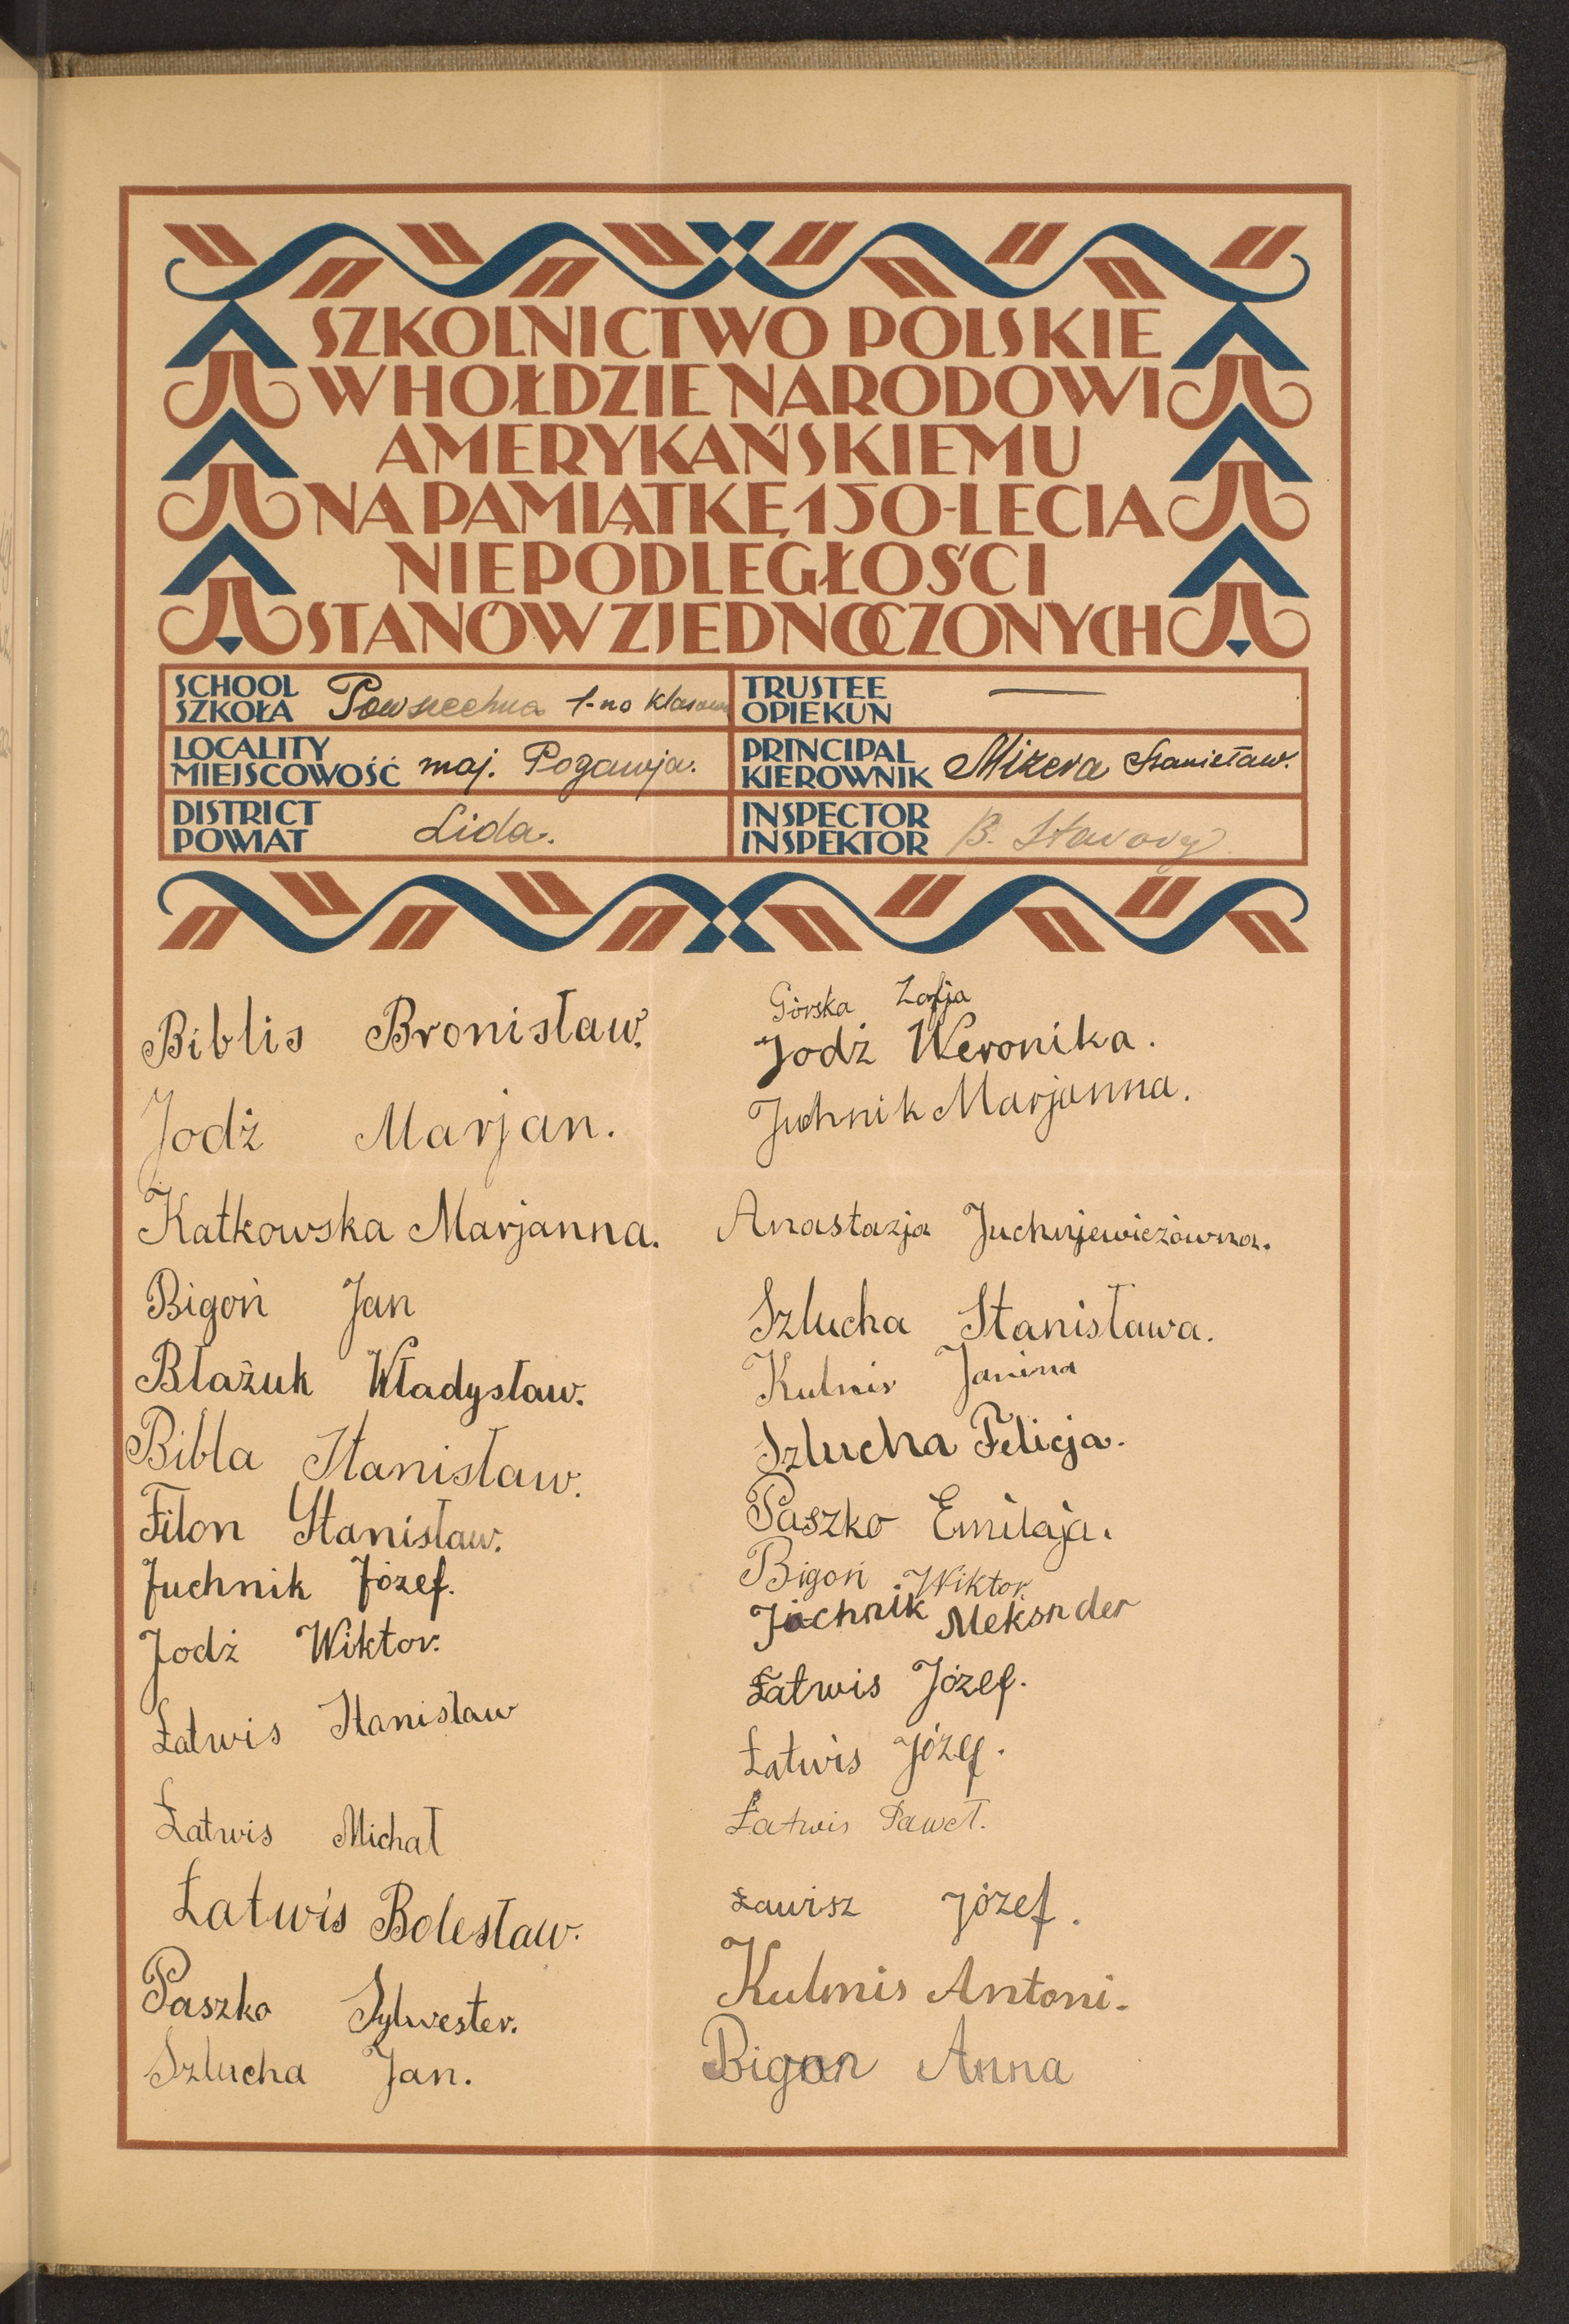 SZKOLNICTWO POLSKIE
W HOŁDZIE NARODOWI
AMERYKAŃSKIEMU
NA PAMIĄTKĘ 150-LECIA
NIEPODLEGŁOŚCI
STANÓW ZJEDNOCZONYCH
SCHOOL
SZKOŁA Powszechna 1-no klasowa
TRUSTEE
OPIEKUN —
LOCALITY
MIEJSCOWOŚĆ maj. Pogawja.
PRINCIPAL
KIEROWNIK Mizera Stanisław.
DISTRICT
POWIAT Lida.
INSPECTOR
INSPEKTOR B.
Biblis Bronisław.
Jodź Marjan.
Katkowska Marjanna.
Bigoń Jan
Błażuk Władysław.
Bibla Stanisław.
Filon Stanisław.
Juchnik Józef.
Jodź Wiktor.
Łatwis Stanisław
Łatwis Michał
Łatwis Bolesław.
Paszko Sylwester.
Szlucha Jan.
Górska Zofja
Jodź Weronika.
Juchnik Marjanna.
Anastazja Juchnjewiczówna.
Szlucha Stanisława.
Kulnis Janina
Szlucha Felicja.
Paszko Emilaja.
Bigoń Wiktor.
Juchnik Aleksnder
Łatwis Józef.
Łatwis Józef.
Łatwis Paweł.
Ławisz Józef.
Kulmis Antoni.
Bigon Anna